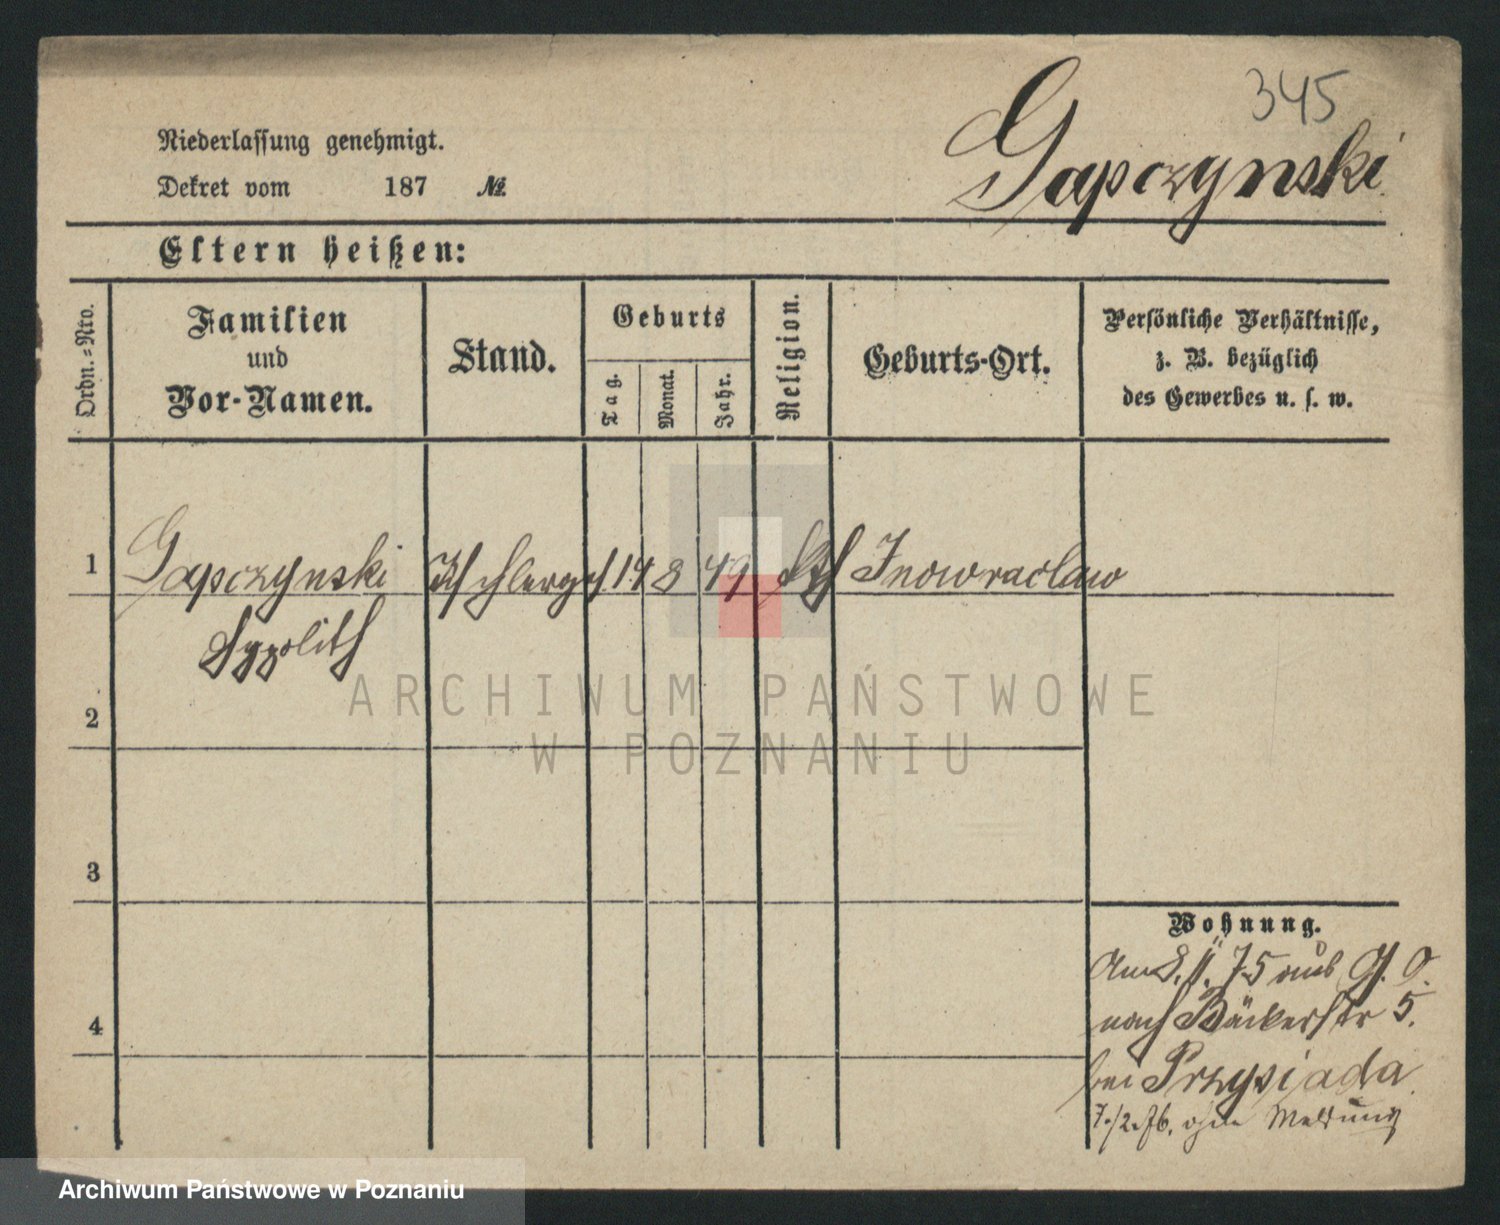 345
Gapczynski
Niederlassung genehmigt.
Dekret vom 187 №.
Eltern heißen:
Ordn.=Nro.
Familien
und
Vor-Namen.
Stand.
Geburts
Tag.
Monat.
Jahr.
Religion.
Geburts-Ort.
Persönliche Verhältnisse,
z. B. bezüglich
des Gewerbes u. s. w.
1 Gapczynski Tischlerges. 14 8 49 kth Inowraclaw
Hypolith
2
3
4
Wohnung.
Am 8. 11. 75 aus G. O.
nach Bäckerstr 5.
bei Przysiada
7./2. 76. ohne Meldung
ARCHIWUM PAŃSTWOWE
W POZNANIU
Archiwum Państwowe w Poznaniu